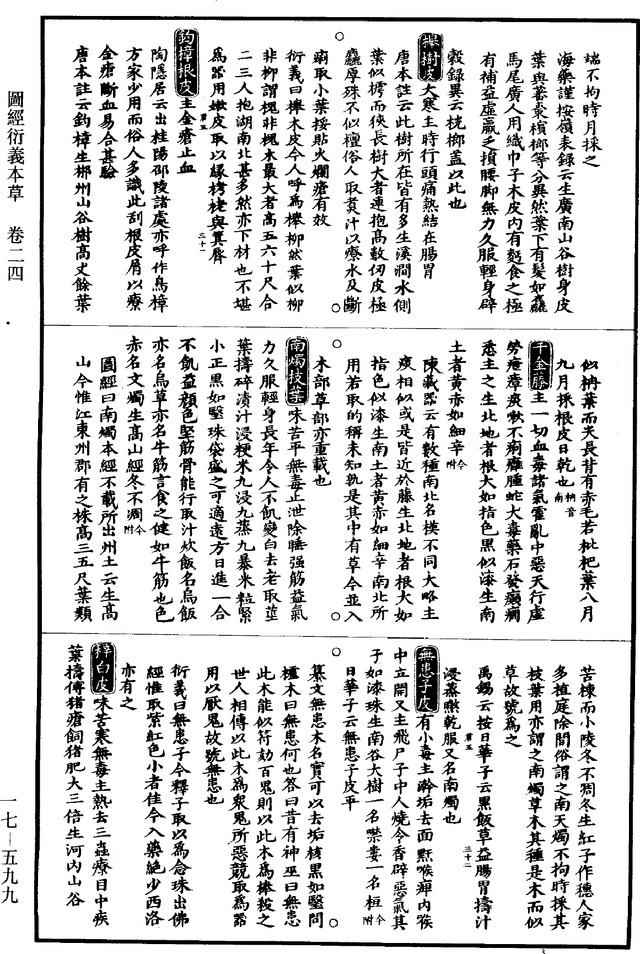 端不拘時月採之
海藥謹按嶺表録云生廣南山谷樹身皮
葉與蕃棗檳榔等分異然葉下有髮如麄
馬尾廣人用織巾子木皮内有麪食之極
有補益虚羸乏損腰脚無力久服輕身辟
穀録異云桄榔蓋以此也
櫸樹皮大寒主時行頭痛熱結在腸胃
唐本註云此樹所在皆有多生溪澗水側
葉似樗而狹長樹大者連抱高數仞皮極
麤厚殊不似檀俗人取煑汁以療水及斷
痢取小葉挼貼火爛瘡有效
衍義曰櫸木皮今人呼為櫸柳然葉似柳
非柳謂槐非槐木最大者高五六十尺合
二三人抱湖南北甚多然亦下材也不堪
為器用嫩皮取以緣栲栳與箕唇
君五
三十一
釣樟根皮主金瘡止血
陶隱居云出桂陽邵陵諸處亦呼作烏樟
方家少用而俗人多識此刮根皮屑以療
金瘡斷血易合甚驗
唐本註云釣樟生郴州山谷樹高丈餘葉
圖經衍義本草 卷二四
似柟葉而尖長背有赤毛若枇杷葉八月
九月採根皮日乾也柟音南
千金藤主一切血毒諸氣霍亂中惡天行虚
勞瘧瘴痰嗽不利癰腫蛇犬毒藥石發癲癇
悉主之生北地者根大如指色黑似漆生南
土者黄赤如細辛今附
陳藏器云有數種南北名模不同大略主
痰相似或是皆近於藤生北地者根大如
指色似漆生南土者黄赤如細辛南北所
用若取的稱未知孰是其中有草今並入
木部草部亦重載也
南燭枝葉味苦平無毒止泄除睡强筋益氣
力久服輕身長年令人不飢變白去老取莖
葉搗碎漬汁浸粳米九浸九蒸九暴米粒緊
小正黑如瑿珠袋盛之可適遠方日進一合
不飢益顔色堅筋骨能行取汁炊飯名烏飯
亦名烏草亦名牛筋言食之健如牛筋也色
赤名文燭生高山經冬不凋今附
圖經曰南燭本經不載所出州土云生高
山今惟江東州郡有之株高三五尺葉類
苦楝而小陵冬不凋冬生紅子作穗人家
多植庭除間俗謂之南天燭不拘時採其
枝葉用亦謂之南燭草木其種是木而似
草故號為之
禹錫云按日華子云黑飯草益腸胃搗汁
浸蒸㬠乾服又名南燭也
君五
三十二
無患子皮有小毒主澣垢去面䵟喉痺内㗋
中立開又主飛尸子中人燒令香辟惡氣其
子如漆珠生南谷大樹一名噤婁一名桓今附
日華子云無患子皮平
纂文無患木名實可以去垢核黑如瑿問
櫨木曰無患何也答曰昔有神巫曰無患
此木能似符劾百鬼則以此木為棒殺之
世人相傳以此木為衆鬼所惡競取為器
用以厭鬼故號無患也
衍義曰無患子今釋子取以為念珠出佛
經惟取紫紅色小者佳今入藥絶少西洛
亦有之
梓白皮味苦寒無毒主熱去三蟲療目中疾
葉搗傅猪瘡飼猪肥大三倍生河内山谷
一七—五九九